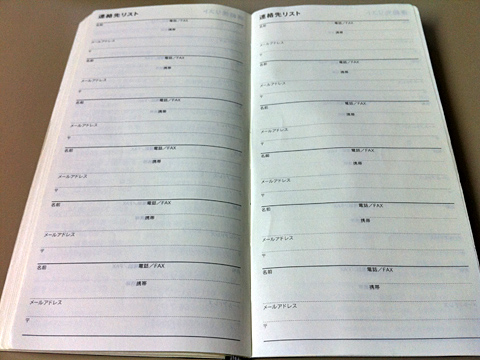 連絡先リスト
名前 電話／FAX
携帯
メールアドレス
〒
名前 電話／FAX
携帯
メールアドレス
〒
名前 電話／FAX
携帯
メールアドレス
〒
名前 電話／FAX
携帯
メールアドレス
〒
名前 電話／FAX
携帯
メールアドレス
〒
名前 電話／FAX
携帯
メールアドレス
〒
連絡先リスト
名前 電話／FAX
携帯
メールアドレス
〒
名前 電話／FAX
携帯
メールアドレス
〒
名前 電話／FAX
携帯
メールアドレス
〒
名前 電話／FAX
携帯
メールアドレス
〒
名前 電話／FAX
携帯
メールアドレス
〒
名前 電話／FAX
携帯
メールアドレス
〒